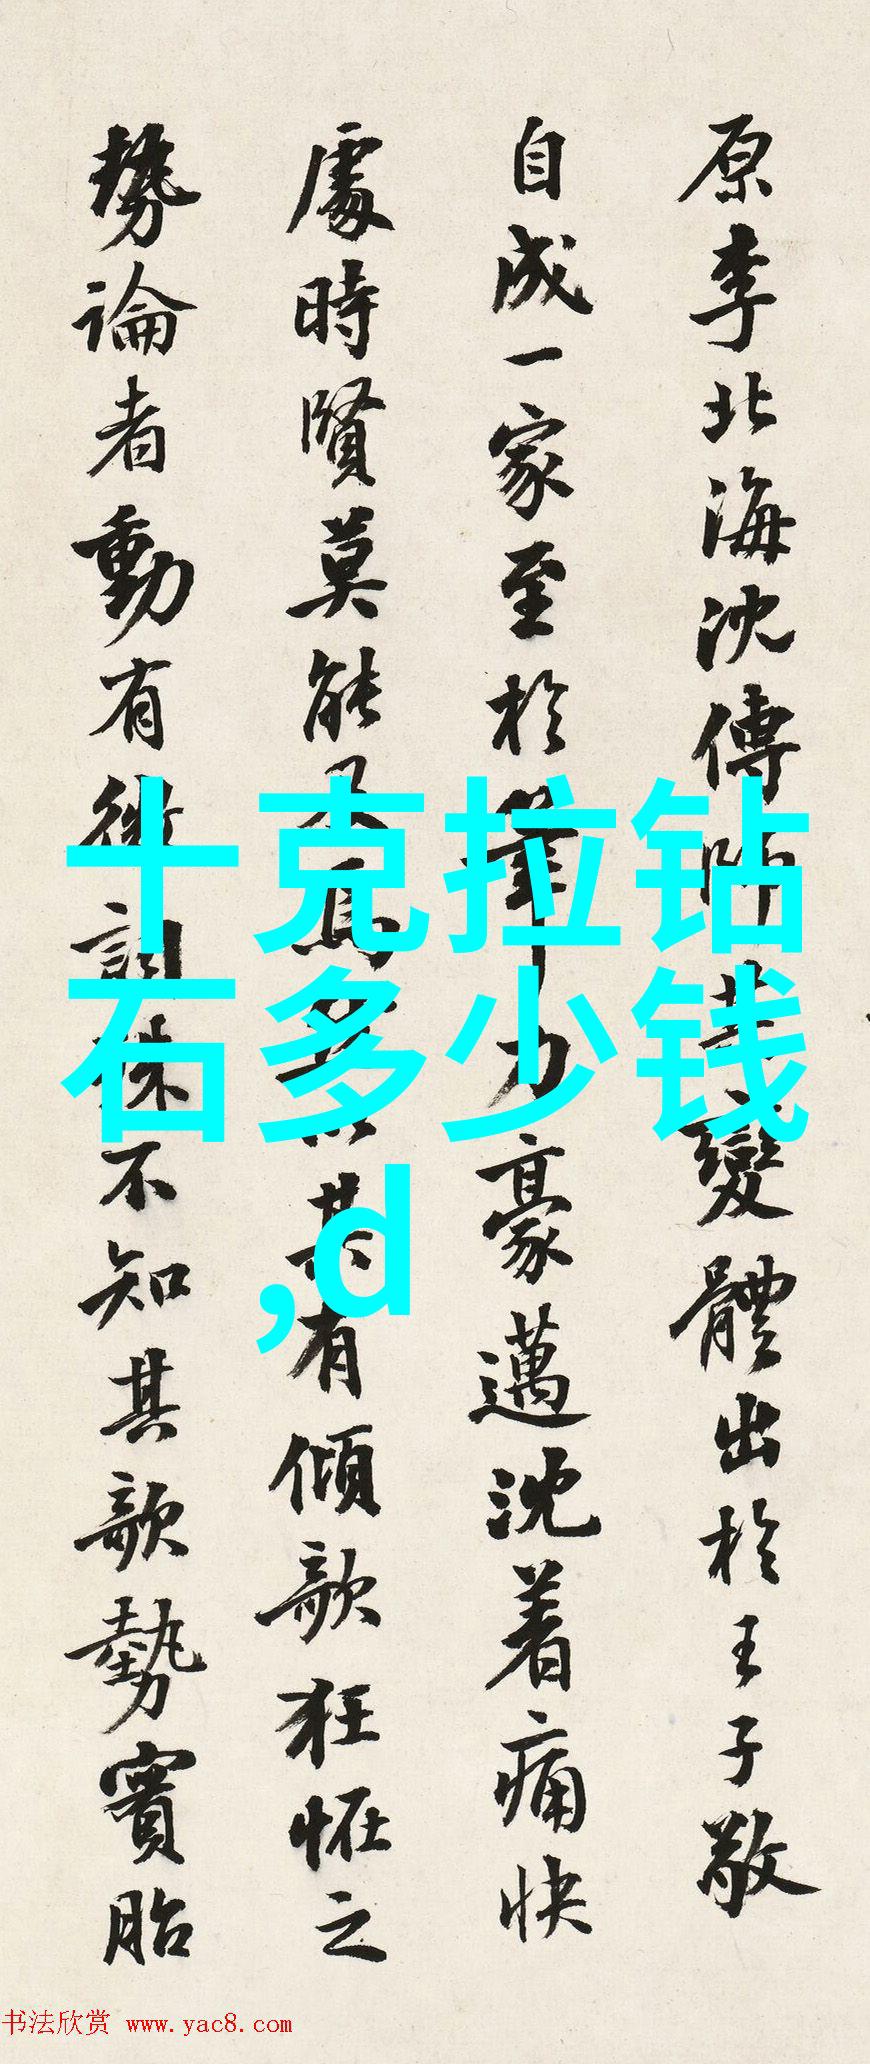 原李北海沈傳師等變體出於王子敬
自成一家至於筆力豪邁沈着痛快
處時賢莫能及焉其有傾欹狂怪之
勢論者動有微詞殊不知其欹勢實胎
十克拉钻
石多少钱
,d
书法欣赏 www.yac8.com